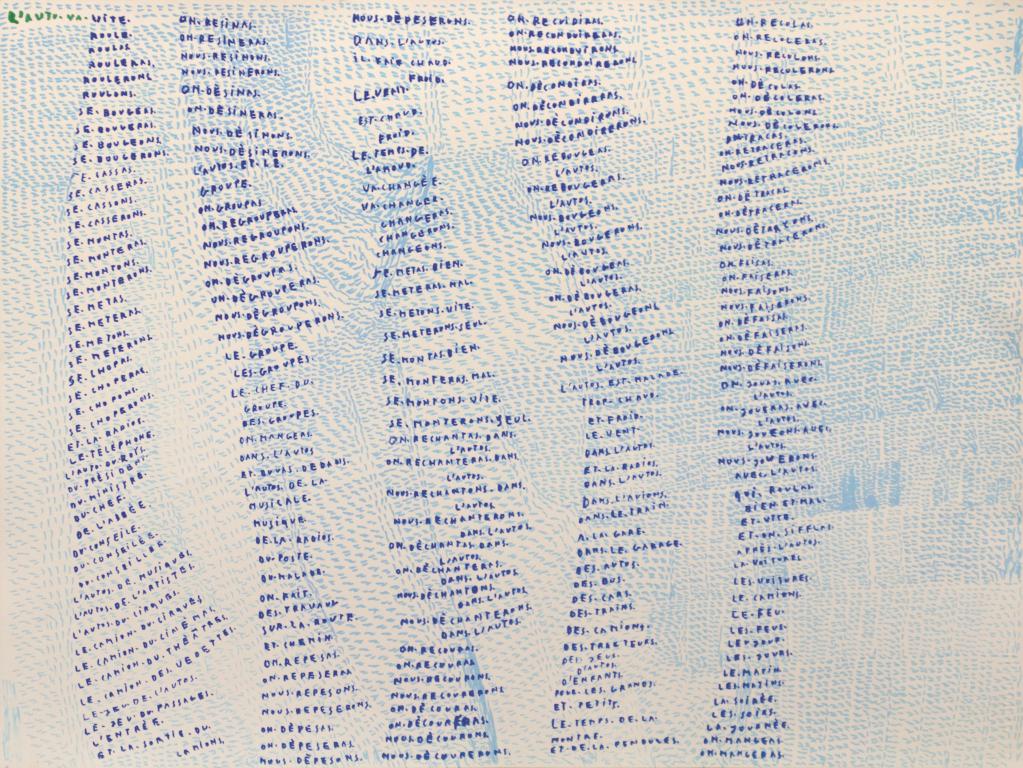 L'AUTO.VA.VITE.
ROULE.
ROULAS.
ROULERAS.
ROULERONS.
ROULONS.
SE.BOUGEAS.
SE.BOUGERAS.
SE.BOUGEONS.
SE.BOUGERONS.
SE.CASSAS.
SE.CASSERAS.
SE.CASSONS.
SE.CASSERONS.
SE.MONTAS.
SE.MONTERAS.
SE.MONTONS.
SE.MONTERONS.
SE.METAS.
SE.METERAS.
SE.METONS.
SE.METERONS.
SE.CHOPAS.
SE.CHOPERAS.
SE.CHOPONS.
SE.CHOPERONS.
ET.LA.RADIOS.
LE.TÉLÉPHONE.
L'AUTO.DU.ROIS.
DU.PRÉSIDENT.
DU.MINISTRE.
DU.CHEF.
DE.L'ABBÉE.
DU.CONSEILE.
DU.CONSEILÉE.
DU.CONSEILLÉE.
L'AUTOS.DE.MUSIQUES.
L'AUTOS.DE.L'ARTISTES.
L'AUTOS.DU.CIRQUES.
LE.CAMION.DU.CIRQUES.
LE.CAMION.DU.CINÉMAL.
LE.CAMION.DU.THÉÂTRES.
LE.CAMION.DES.VEDETTES.
LE.JEU.DE.L'AUTOS.
LE.JEU.DU.PASSAGES.
L'ENTRÉE.
ET.LA.SORTIE.DU.
CAMIONS.
ON.RESINAS.
ON.RESINERAS.
NOUS.RESINONS.
NOUS.RESINERONS.
ON.DÉSINAS.
ON.DÉSINERAS.
NOUS.DÈSINONS.
NOUS.DÈSINERONS.
L'AUTOS.ET.LE.
GROUPE.
ON.GROUPAS.
ON.REGROUPERAS.
NOUS.REGROUPONS.
NOUS.REGROUPERONS.
ON.DÈGROUPAS.
ON.DÈGROUPERAS.
NOUS.DÈGROUPONS.
NOUS.DÈGROUPERONS.
LE.GROUPE.
LES.GROUPES.
LE.CHEF.DU.
GROUPE.
DES.GROUPES.
ON.MANGEAS.
DANS.L'AUTOS
ET.BUVAS.DEDANS.
L'AUTOS.DE.LA.
MUSICALE.
MUSIQUE.
DE.LA.RADIOS.
DU.POSTE.
DU.MALADE.
ON.FAIT.
DES.TRAVAUX
SUR.LA.ROUTE.
ET.CHEMIN.
ON.REPESAS.
ON.REPESERAS
NOUS.REPESONS.
NOUS.REPESERONS.
ON.DÈPESAS.
ON.DÈPESERAS.
NOUS.DÈPESONS.
NOUS.DÈPESERONS.
DANS.L'AUTOS.
IL.FAIT.CHAUD.
FROID.
LE.VENT.
EST.CHAUD.
FROID.
LE.TEMPS.DE.
L'AMOUR.
VA.CHANGÉE.
VA.CHANGER.
CHANGERAS.
CHANGERONS.
CHANGEONS.
SE.METAS.BIEN.
SE.METERAS.MAL.
SE.METONS.VITE.
SE.METERONS.SEUL.
SE.MONTAS.BIEN.
SE.MONTERAS.MAL.
SE.MONTONS.VITE.
SE.MONTERONS.SEUL.
ON.RECHANTAS.DANS.
L'AUTOS.
ON.RECHANTERAS.DANS
L'AUTOS.
NOUS.RECHANTONS.DANS.
L'AUTOS.
NOUS.RECHANTERONS.
DANS.L'AUTOS.
ON.DÈCHANTAS.DANS.
L'AUTOS.
ON.DÈCHANTERAS.
DANS.L'AUTOS
NOUS.DÈCHANTONS.
DANS.L'AUTOS
NOUS.DÈCHANTERONS.
DANS.L'AUTOS.
ON.RECOURAS.
ON.RECOURRAS
NOUS.RECOURONS.
NOUS.RECOURERONS
ON.DÈCOURAS.
ON.DÈCOURERAS.
NOUS.DÈCOURONS
NOUS.DÈCOURERONS.
ON.RECUIDIRAS.
ON.RECONDUIRERAS.
NOUS.RECONDUIRONS.
NOUS.RECONDUIRERONS
ON.DÈCONDIRAS.
ON.DÈCONDIRERAS.
NOUS.DÈCONDIRONS.
NOUS.DÈCONDIRERONS.
ON.REBOUGEAS.
L'AUTOS.
ON.REBOUGERAS.
L'AUTOS.
NOUS.BOUGEONS.
L'AUTOS.
NOUS.BOUGERONS.
L'AUTOS.
ON.DÈBOUGEAS.
L'AUTOS.
ON.DÈBOUGERAS.
L'AUTOS.
NOUS.DÈBOUGEONS
L'AUTOS.
NOUS.DÈBOUGEONS
L'AUTOS.
L'AUTOS.EST.MALADE.
TROP.CHAUD.
ET.FROID.
LE.VENT.
DANS.L'AUTOS.
ET.LA.RADIOS.
DANS.L'AUTOS.
DANS.L'AVIONS.
DANS.LE.TRAIN.
A.LA.GARE.
DANS.LE.GARAGE.
DES.AUTOS.
DES.BUS.
DES.CARS.
DES.TRAINS.
DES.CAMIONS.
DES.TRACTEURS.
DES.JEUX.
D'AUTOS
D'ENFANTS.
POUR.LES.GRANDS.
ET.PETITS.
LE.TEMPS.DE.LA.
MONTRE.
ET.DE.LA.PENDULES.
ON.RECOLAS.
ON.RECOLERAS.
NOUS.RECULONS.
NOUS.RECULERONS
ON.DÈCOLAS
ON.DÈCOLERAS.
NOUS.DÈCOLONS
NOUS.DÈCOLERONS
ON.TRACAS.
ON.RETRACERAS.
NOUS.RETRACONS.
NOUS.RETRACERONS.
ON.DÈTRACAS.
ON.DÈTRACERAS.
NOUS.DÈTARTRONS.
ON.FAISAS.
ON.FAISERAS.
NOUS.FAISONS.
NOUS.FAISERONS.
ON.DÈFAISAS.
ON.DÈFAISERAS.
NOUS.DÈFAISONS.
NOUS.DÈFAISERONS.
ON.JOUAS.AVEC.
L'AUTOS.
ON.JOUERAS.AVEC.
L'AUTOS.
NOUS.JOUEONS.AVEC.
L'AUTOS
NOUS.JOUERONS
AVEC.L'AUTOS.
QUI.ROULAS
BIEN.ET.MAL.
ET.VITE.
ET.ON.SIFFLAS.
APRÈS.L'AUTOS.
LA.VOITURES
LES.VOITURES.
LE.CAMIONS.
LE.FEU.
LES.FEUS.
LE.JOUR.
LES.JOURS.
LE.MATIN.
LES.MATINS.
LA.SOIRÉE.
LES.SOIRS.
LA.JOURNÉE.
ON.MANGEAS.
ON.MANGERAS.